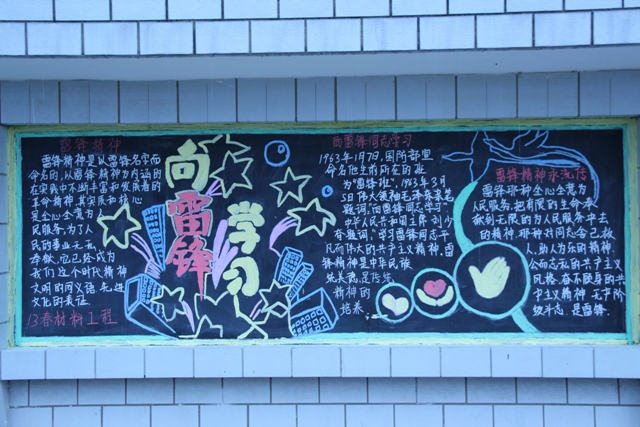 雷锋精神
雷锋精神是以雷锋名字而
命名的,以雷锋精神为内涵的
在实践中不断丰富和发展着的
革命精神,其实质和核心
是全心全意为人
民服务,为了人
民的事业无私
奉献,它已经成为
我们这个时代精神
文明的同义语,先进
文化的表征
13春材料工程
向
雷
锋
学
习
向雷锋同志学习
1963年1月7日,国防部望
命名他生前所在的班
为"雷锋班",1963年3月
5日伟大领袖毛泽东亲笔
题词"向雷锋同志学习"
中华人民共和国主席刘少
奇题词"学习雷锋同志平
凡而伟大的共产主义精神,雷
锋精神是中华民族
精神的
培养
雷锋精神永流传
雷锋那种全心全意为
人民服务,把有限的生命奉
献到无限的为人民服务中去
的精神,那种对同志
人,助人为乐的精神,
公而忘私的共产主义
风格,奋不顾身的共
产主义精神,无产阶
级斗志,是雷锋